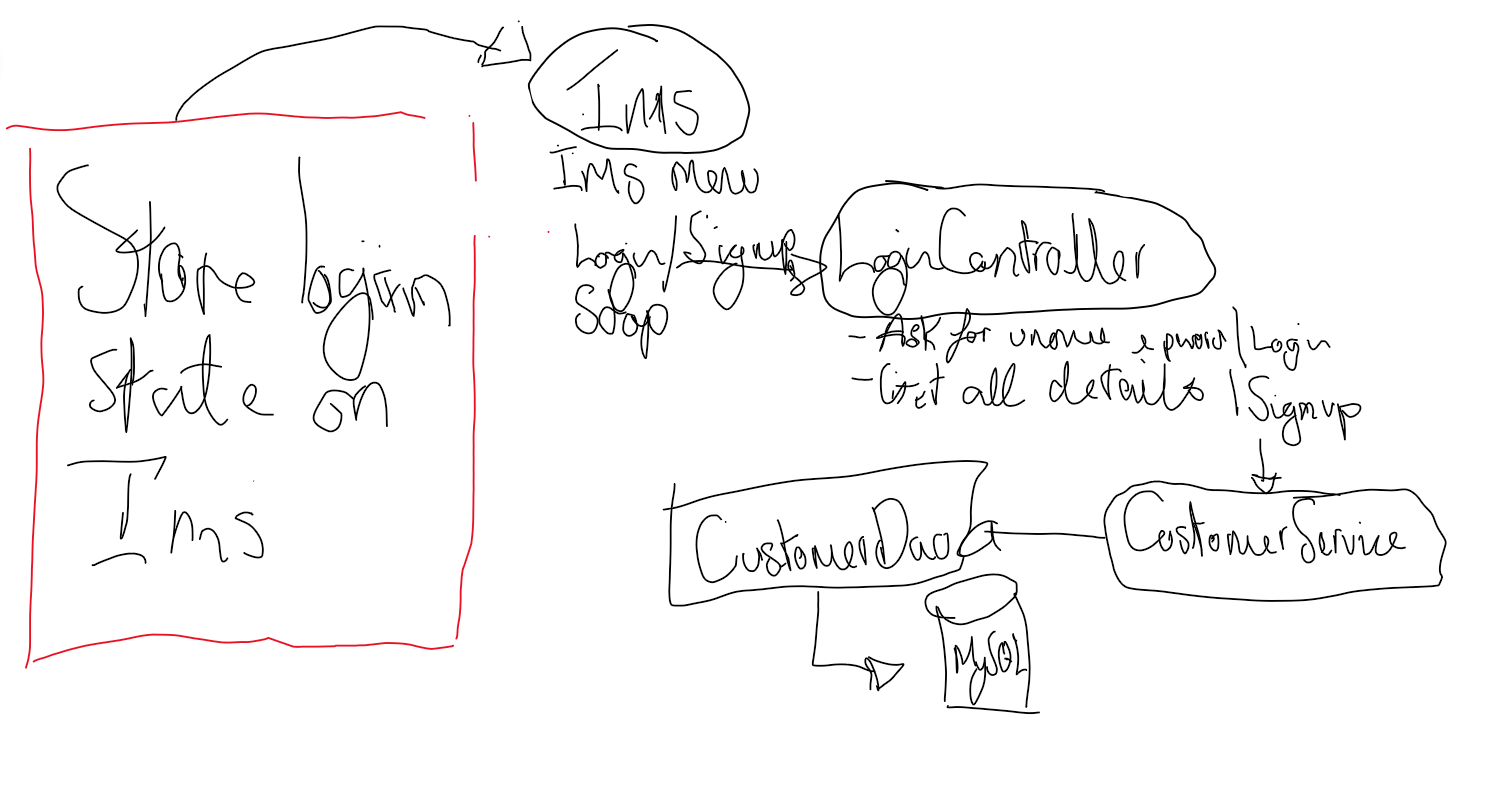 Store login
state on
Ims
IMS
IMS Menu
Login/Signup
Stop
LoginController
- Ask for uname & pword | Login
- Get all details | Signup
CustomerService
CustomerDao
MySQL